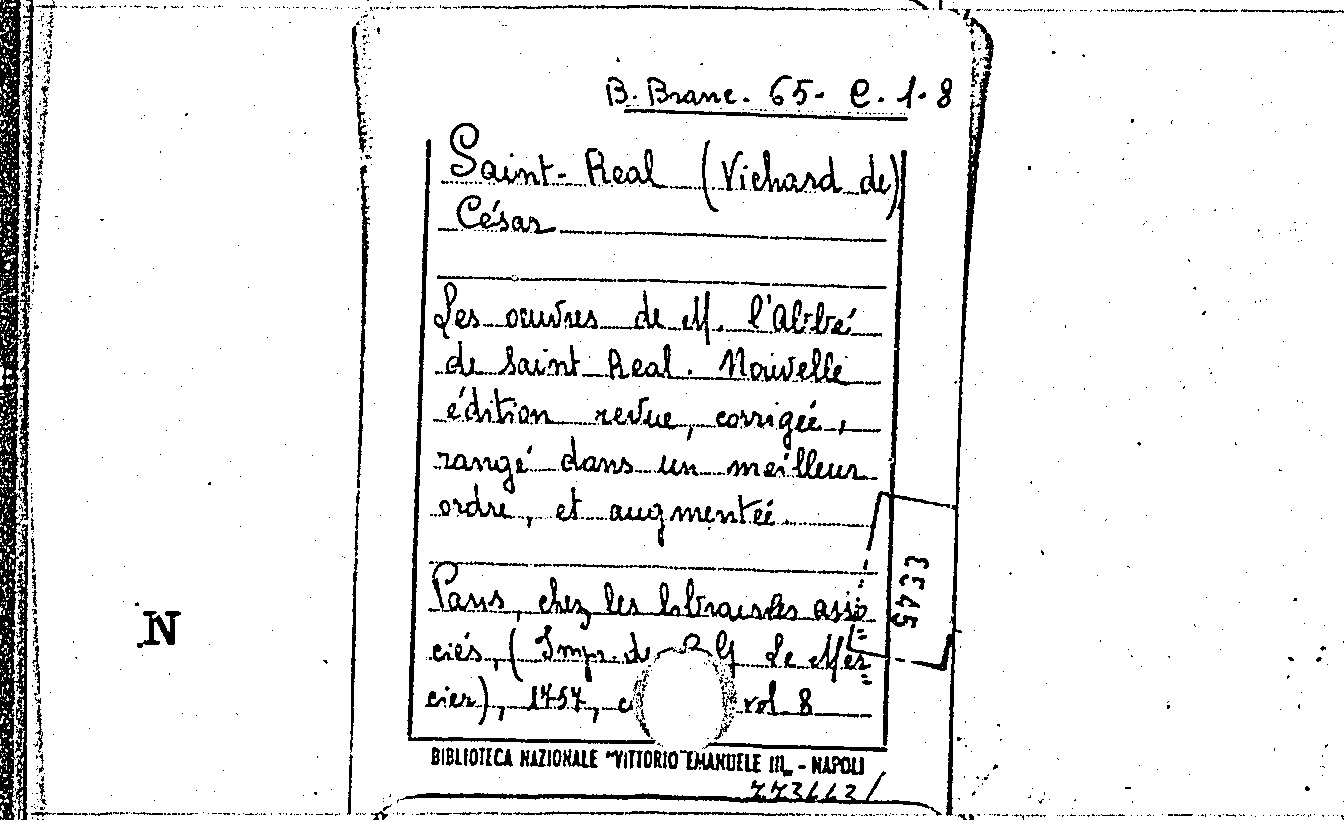 B. Branc. 65- C. 1. 8
Saint-Real (Vichard de)
César
Les oeuvres de M. l'Abbé
de Saint Real. Nouvelle
édition revue, corrigée,
rangé dans un meilleur
ordre, et augmentée.
Paris, chez les libraires asso=
ciés, (Impr. de P.G. Le Mer=
cier), 1757, vol 8
BIBLIOTECA NAZIONALE "VITTORIO EMANUELE III" - NAPOLI
N